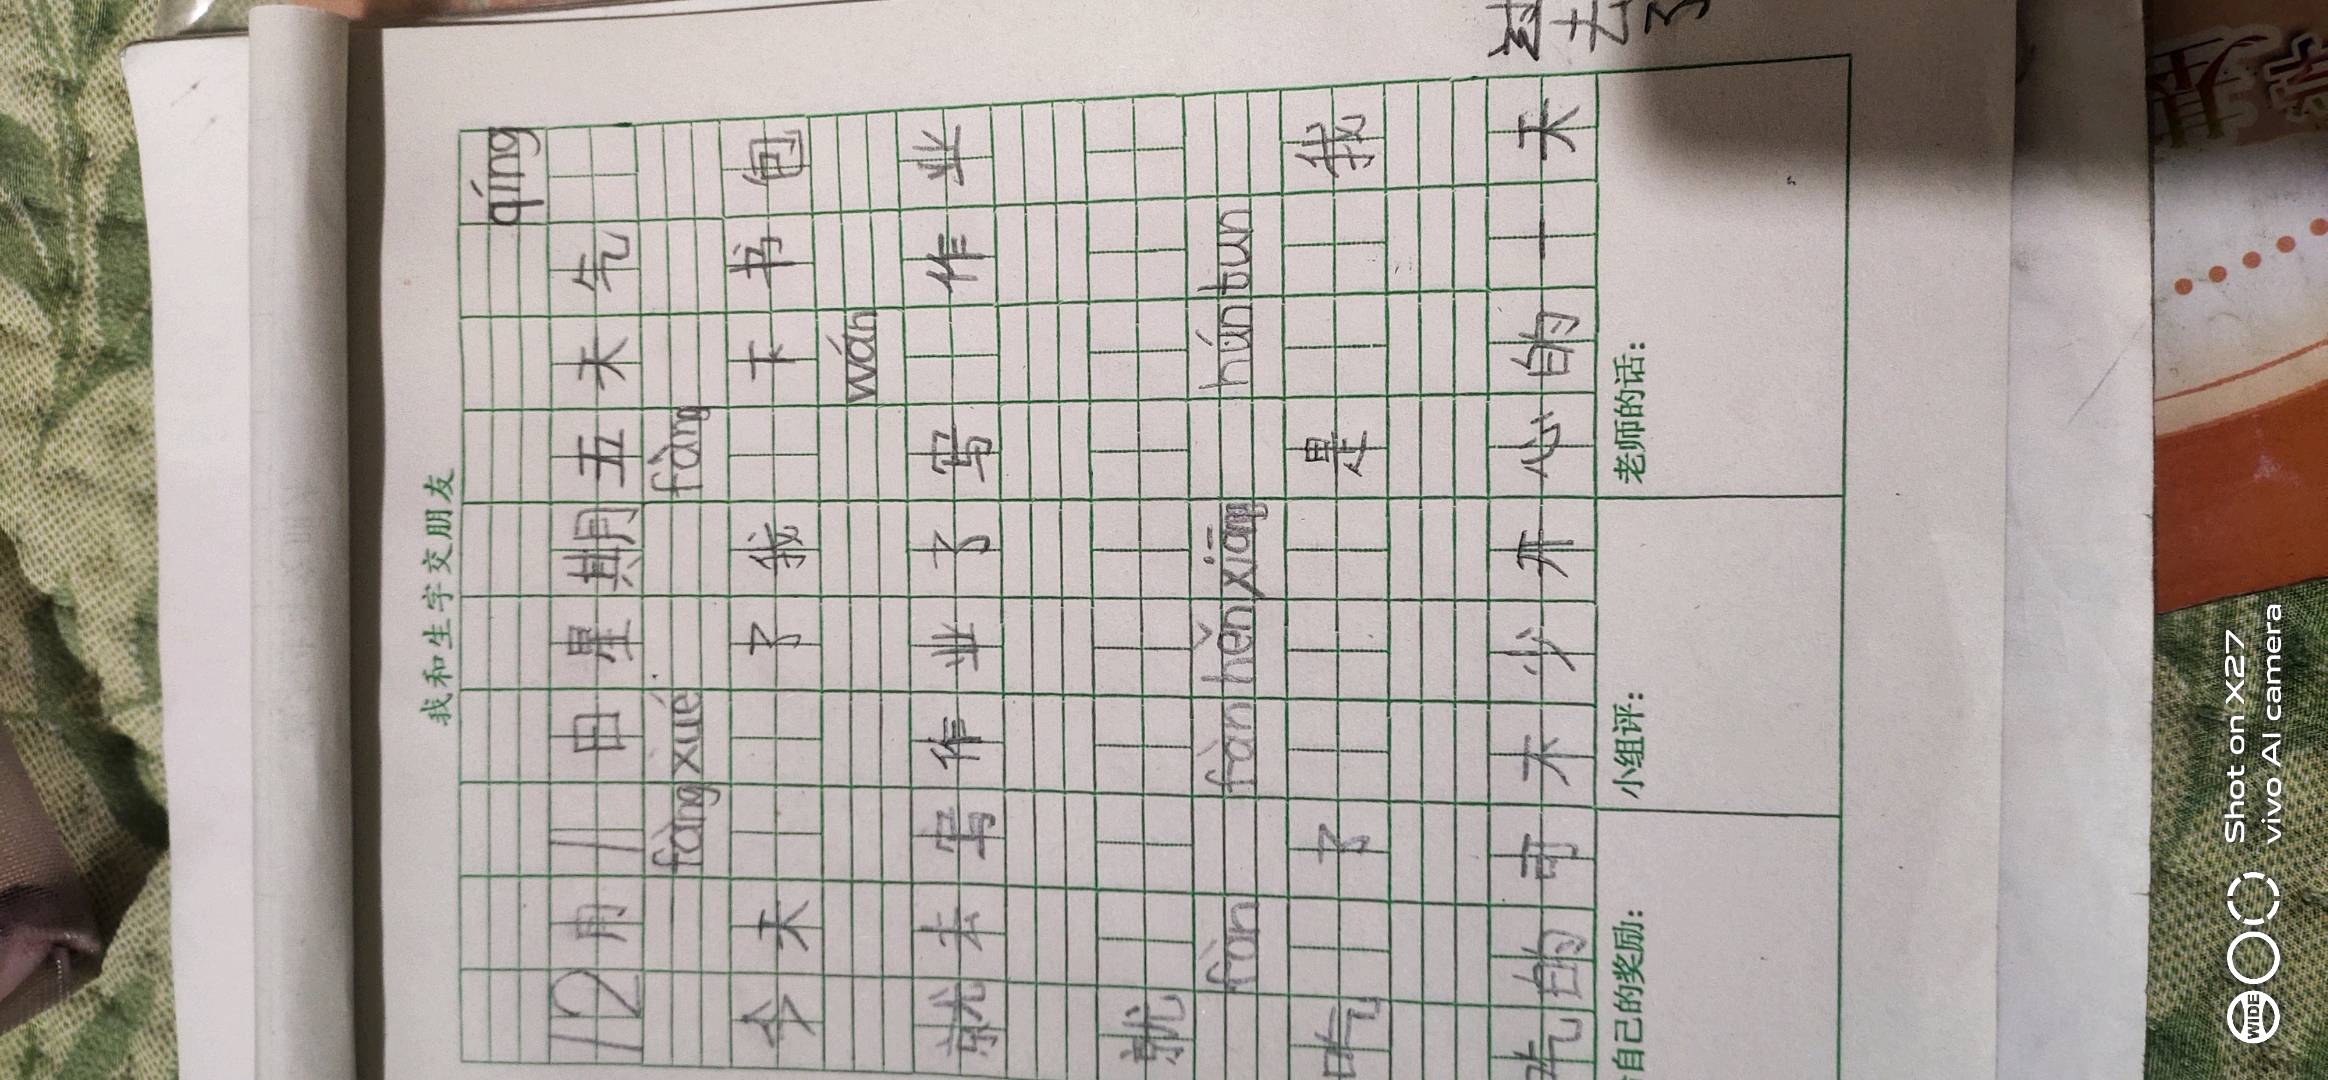 我和生字交朋友
qíng
12月11日星期五天气
fàng xué fàng
今天 了我 下书包
wán
就去写作业了写 作业
就
fàn fàn hěn xiāng hún tun
吃 了 是 我
吃的可不少开心的一天
过去了
自己的奖励: 小组评: 老师的话:
WIDE
Shot on X27
vivo AI camera